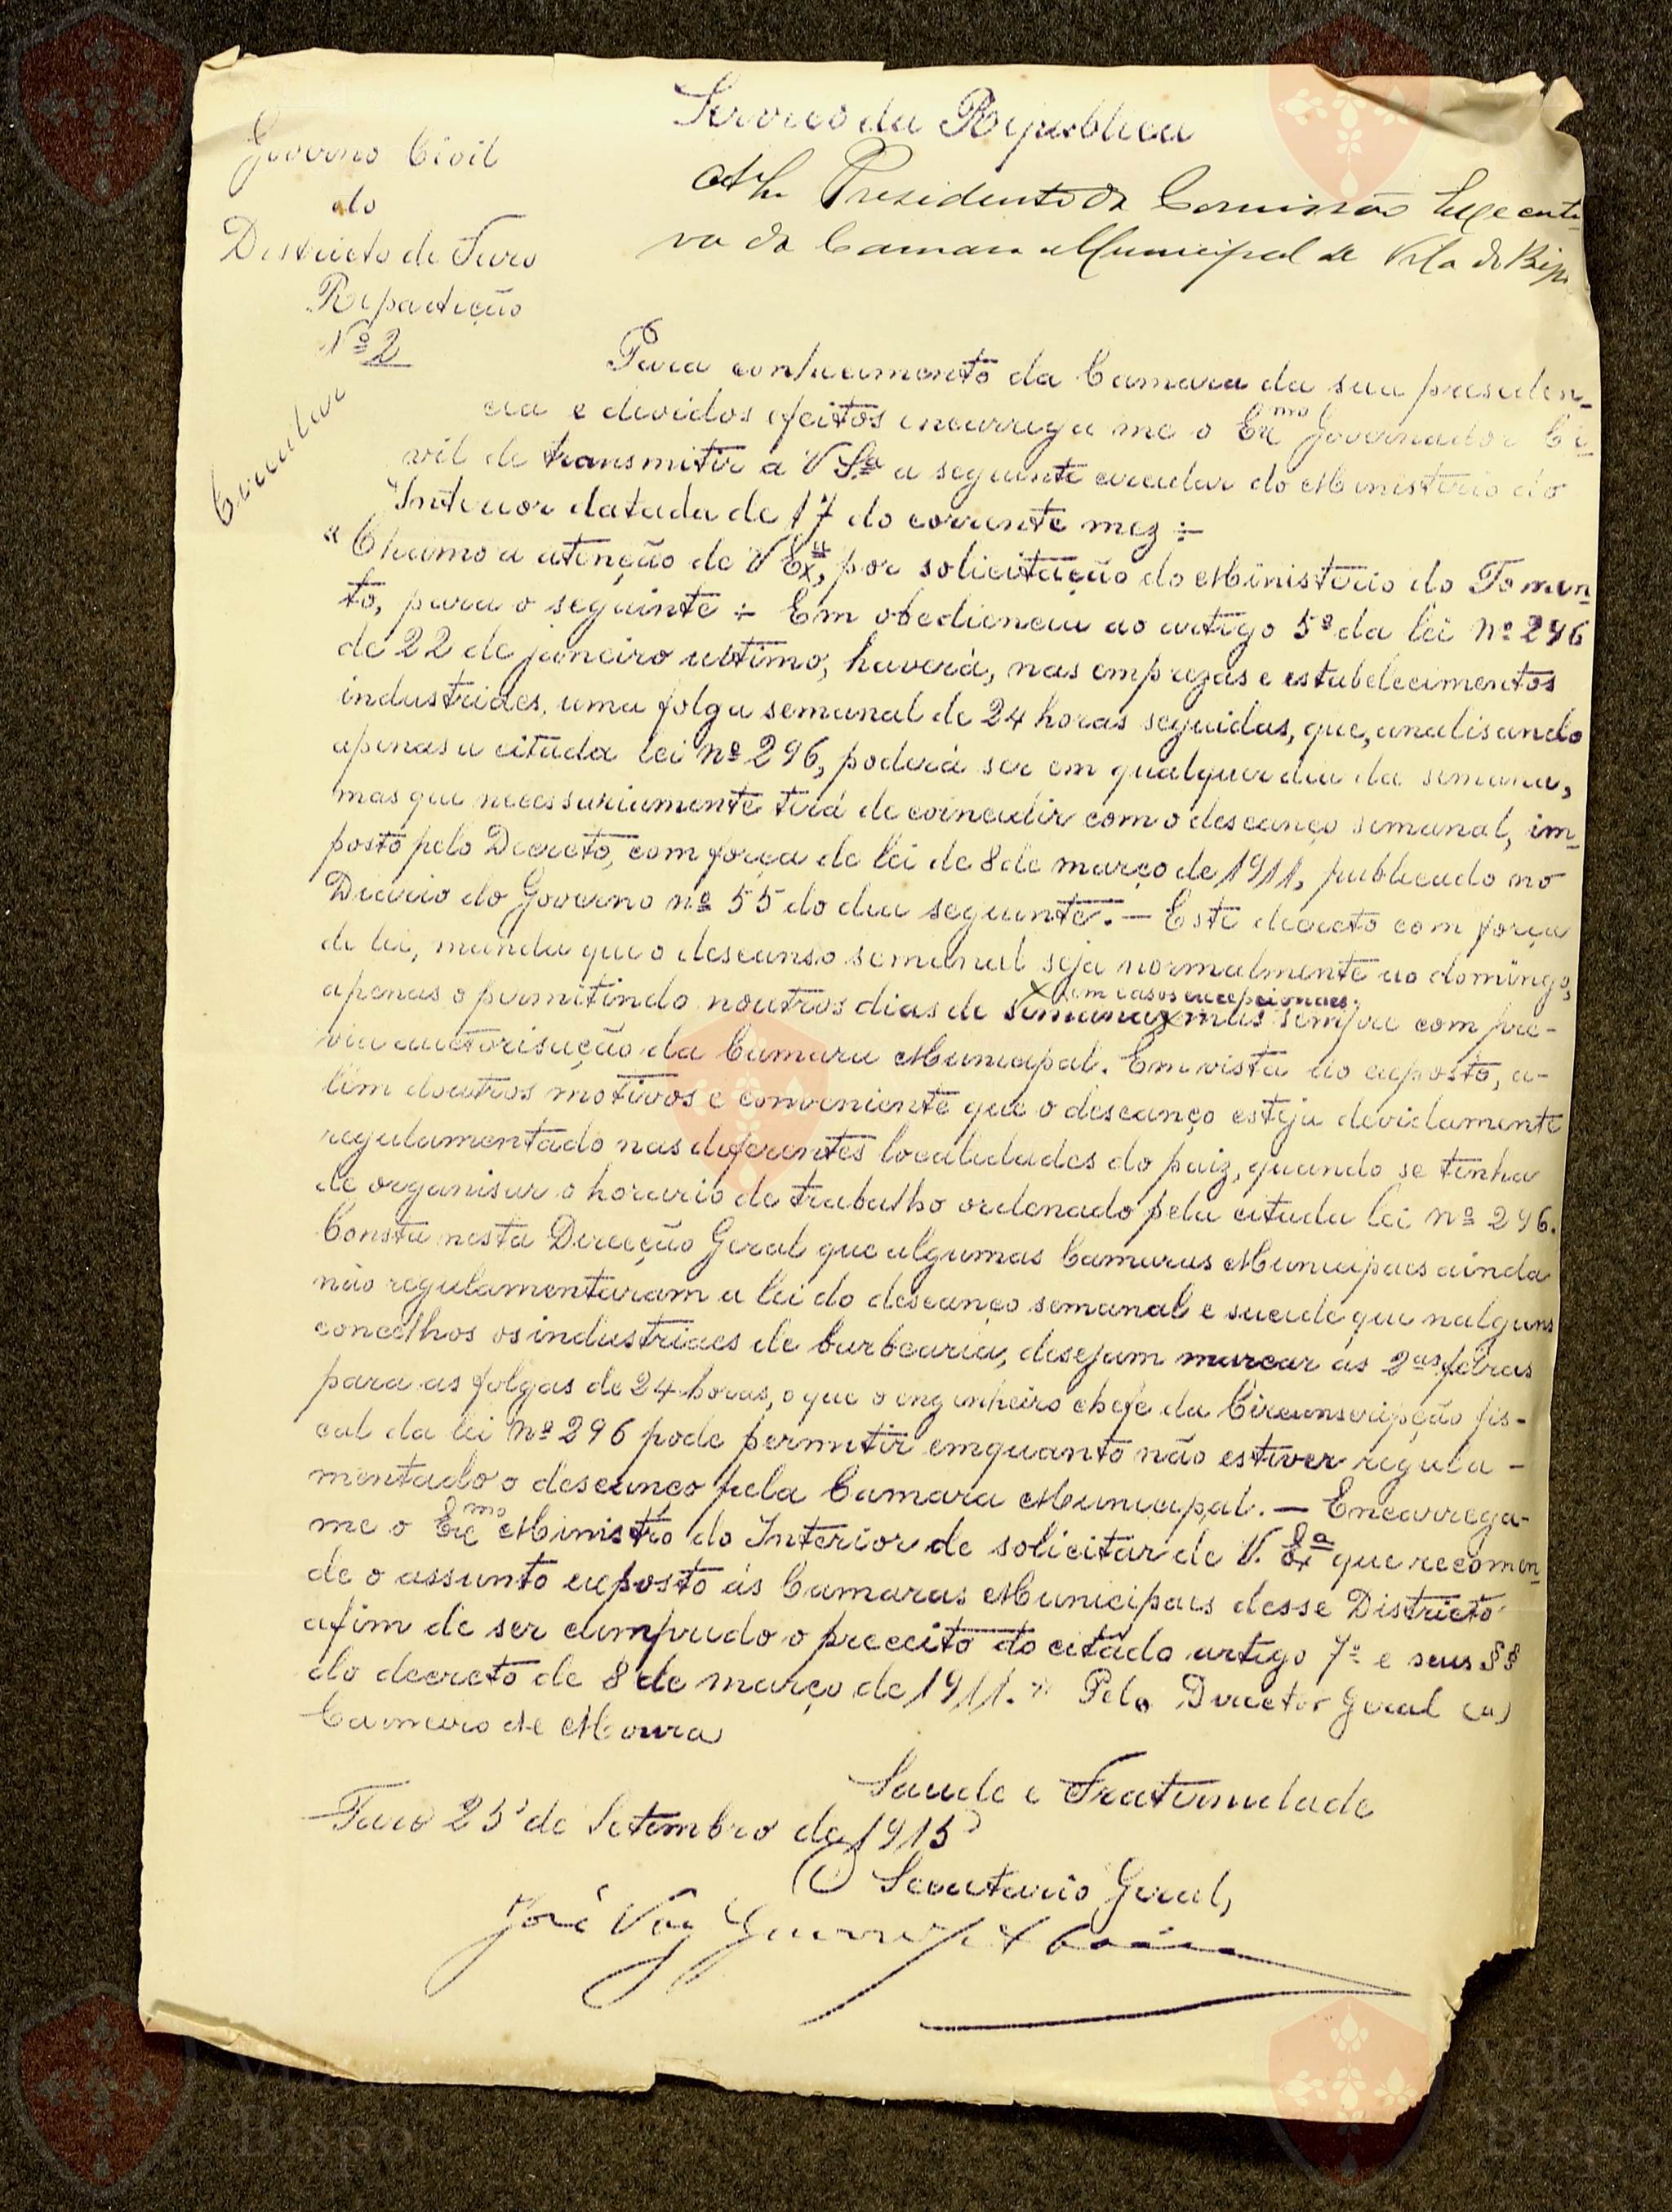 Serviço da Republica
Governo Civil
do
Districto de Faro
Repartição
Nº 2
Circular
Presidente da Comissão Executi-
va da Camara Municipal de Vila do Bispo
Para conhecimento da Camara da sua presiden-
cia e devidos efeitos encarrega me o Exmo Governador Ci-
vil de transmitir a V Sª a seguinte circular do Ministerio do
Interior datada de 17 do corrente mez ÷
"Chamo a atenção de V Exª, por solicitação do Ministerio do Fomen-
to, para o seguinte ÷ Em obediencia ao artigo 5º da lei nº 296
de 22 de janeiro ultimo, haverá, nas emprezas e estabelecimentos
industriaes, uma folga semanal de 24 horas seguidas, que, analisando
apenas a citada lei nº 296, poderá ser em qualquer dia da semana,
mas que necessariamente terá de coincidir com o descanço semanal, im-
posto pelo Decreto, com força de lei de 8 de março de 1911, publicado no
Diario do Governo nº 55 do dia seguinte. — Este decreto com força
de lei, manda que o descanso semanal seja normalmente ao domingo,
em casos excepcionaes,
apenas o permitindo noutros dias de semana x mas sempre com pre-
via auctorisação da Camara Municipal. Em vista do exposto, a-
lem doutros motivos e conveniente que o descanço esteja devidamente
regulamentado nas diferentes localidades do paiz, quando se tenha
de organisar o horario de trabalho ordenado pela citada lei nº 296.
Consta nesta Direcção Geral que algumas Camaras Municipaes ainda
não regulamentaram a lei do descanço semanal e sucede que nalguns
concelhos os industriaes de barbearia, desejam marcar as 2as feiras
para as folgas de 24 horas, o que o engenheiro chefe da Circunscripção fis-
cal da lei nº 296 pode permitir emquanto não estiver regula-
mentado o descanço pela Camara Municipal. — Encarrega-
me o Exmo Ministro do Interior de solicitar de V. Exª que recomen-
de o assunto exposto ás Camaras Municipaes desse Districto
afim de ser cumprido o preceito do citado artigo 7º e seus §§
do decreto de 8 de março de 1911." Pelo Director Geral (a)
Carneiro de Moura
Saude e Fraternidade
Faro 25 de Setembro de 1915
O Secretario Geral,
José Vaz Guerreiro
Vila do
Bispo
Vila do
Bispo